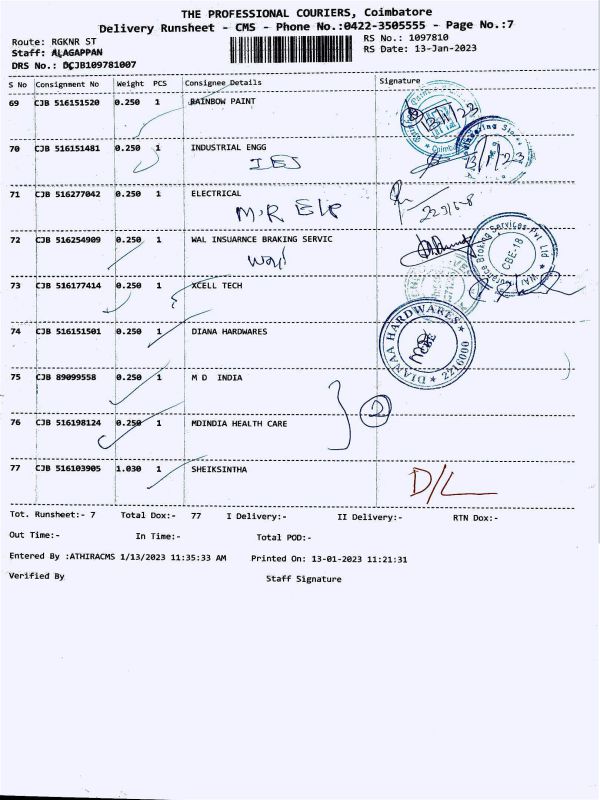 THE PROFESSIONAL COURIERS, Coimbatore
Delivery Runsheet - CMS - Phone No.:0422-3505555 - Page No.:7
Route: RGKNR ST
RS No.: 1097810
Staff: ALAGAPPAN
RS Date: 13-Jan-2023
DRS No.: DCJB109781007
S No Consignment No Weight PCS Consignee Details Signature
69 CJB 516151520 0.250 1 RAINBOW PAINT
70 CJB 516151481 0.250 1 INDUSTRIAL ENGG
IES
13/1/23
71 CJB 516277042 0.250 1 ELECTRICAL
M.R Ele
72 CJB 516254909 0.250 1 WAL INSUARNCE BRAKING SERVIC
Wal
CBE-18
73 CJB 516177414 0.250 1 XCELL TECH
74 CJB 516151501 0.250 1 DIANA HARDWARES
DIANAA HARDWARES
2216000
75 CJB 89099558 0.250 1 M D INDIA
76 CJB 516198124 0.250 1 MDINDIA HEALTH CARE
2
77 CJB 516103905 1.030 1 SHEIKSINTHA
D/L
Tot. Runsheet:- 7 Total Dox:- 77 I Delivery:- II Delivery:- RTN Dox:-
Out Time:- In Time:- Total POD:-
Entered By :ATHIRACMS 1/13/2023 11:35:33 AM Printed On: 13-01-2023 11:21:31
Verified By Staff Signature